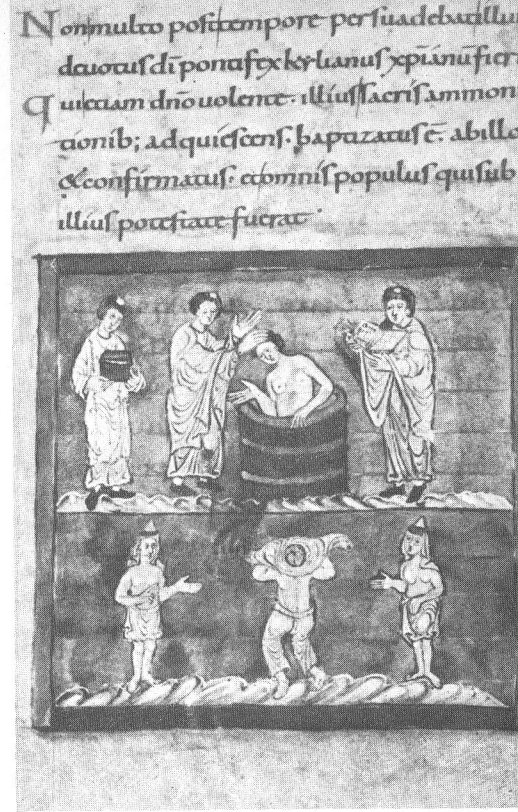 Non multo post tempore persuadebat illu
deuotus dī pontifex kylianus xp̄ianū fieri
Qui etiam dn̄o uolente · illius sacris ammon
tionib; adquiescens · baptizatus ē · ab illo
& confirmatus · et omnis populus qui sub
illius potestate fuerat ·